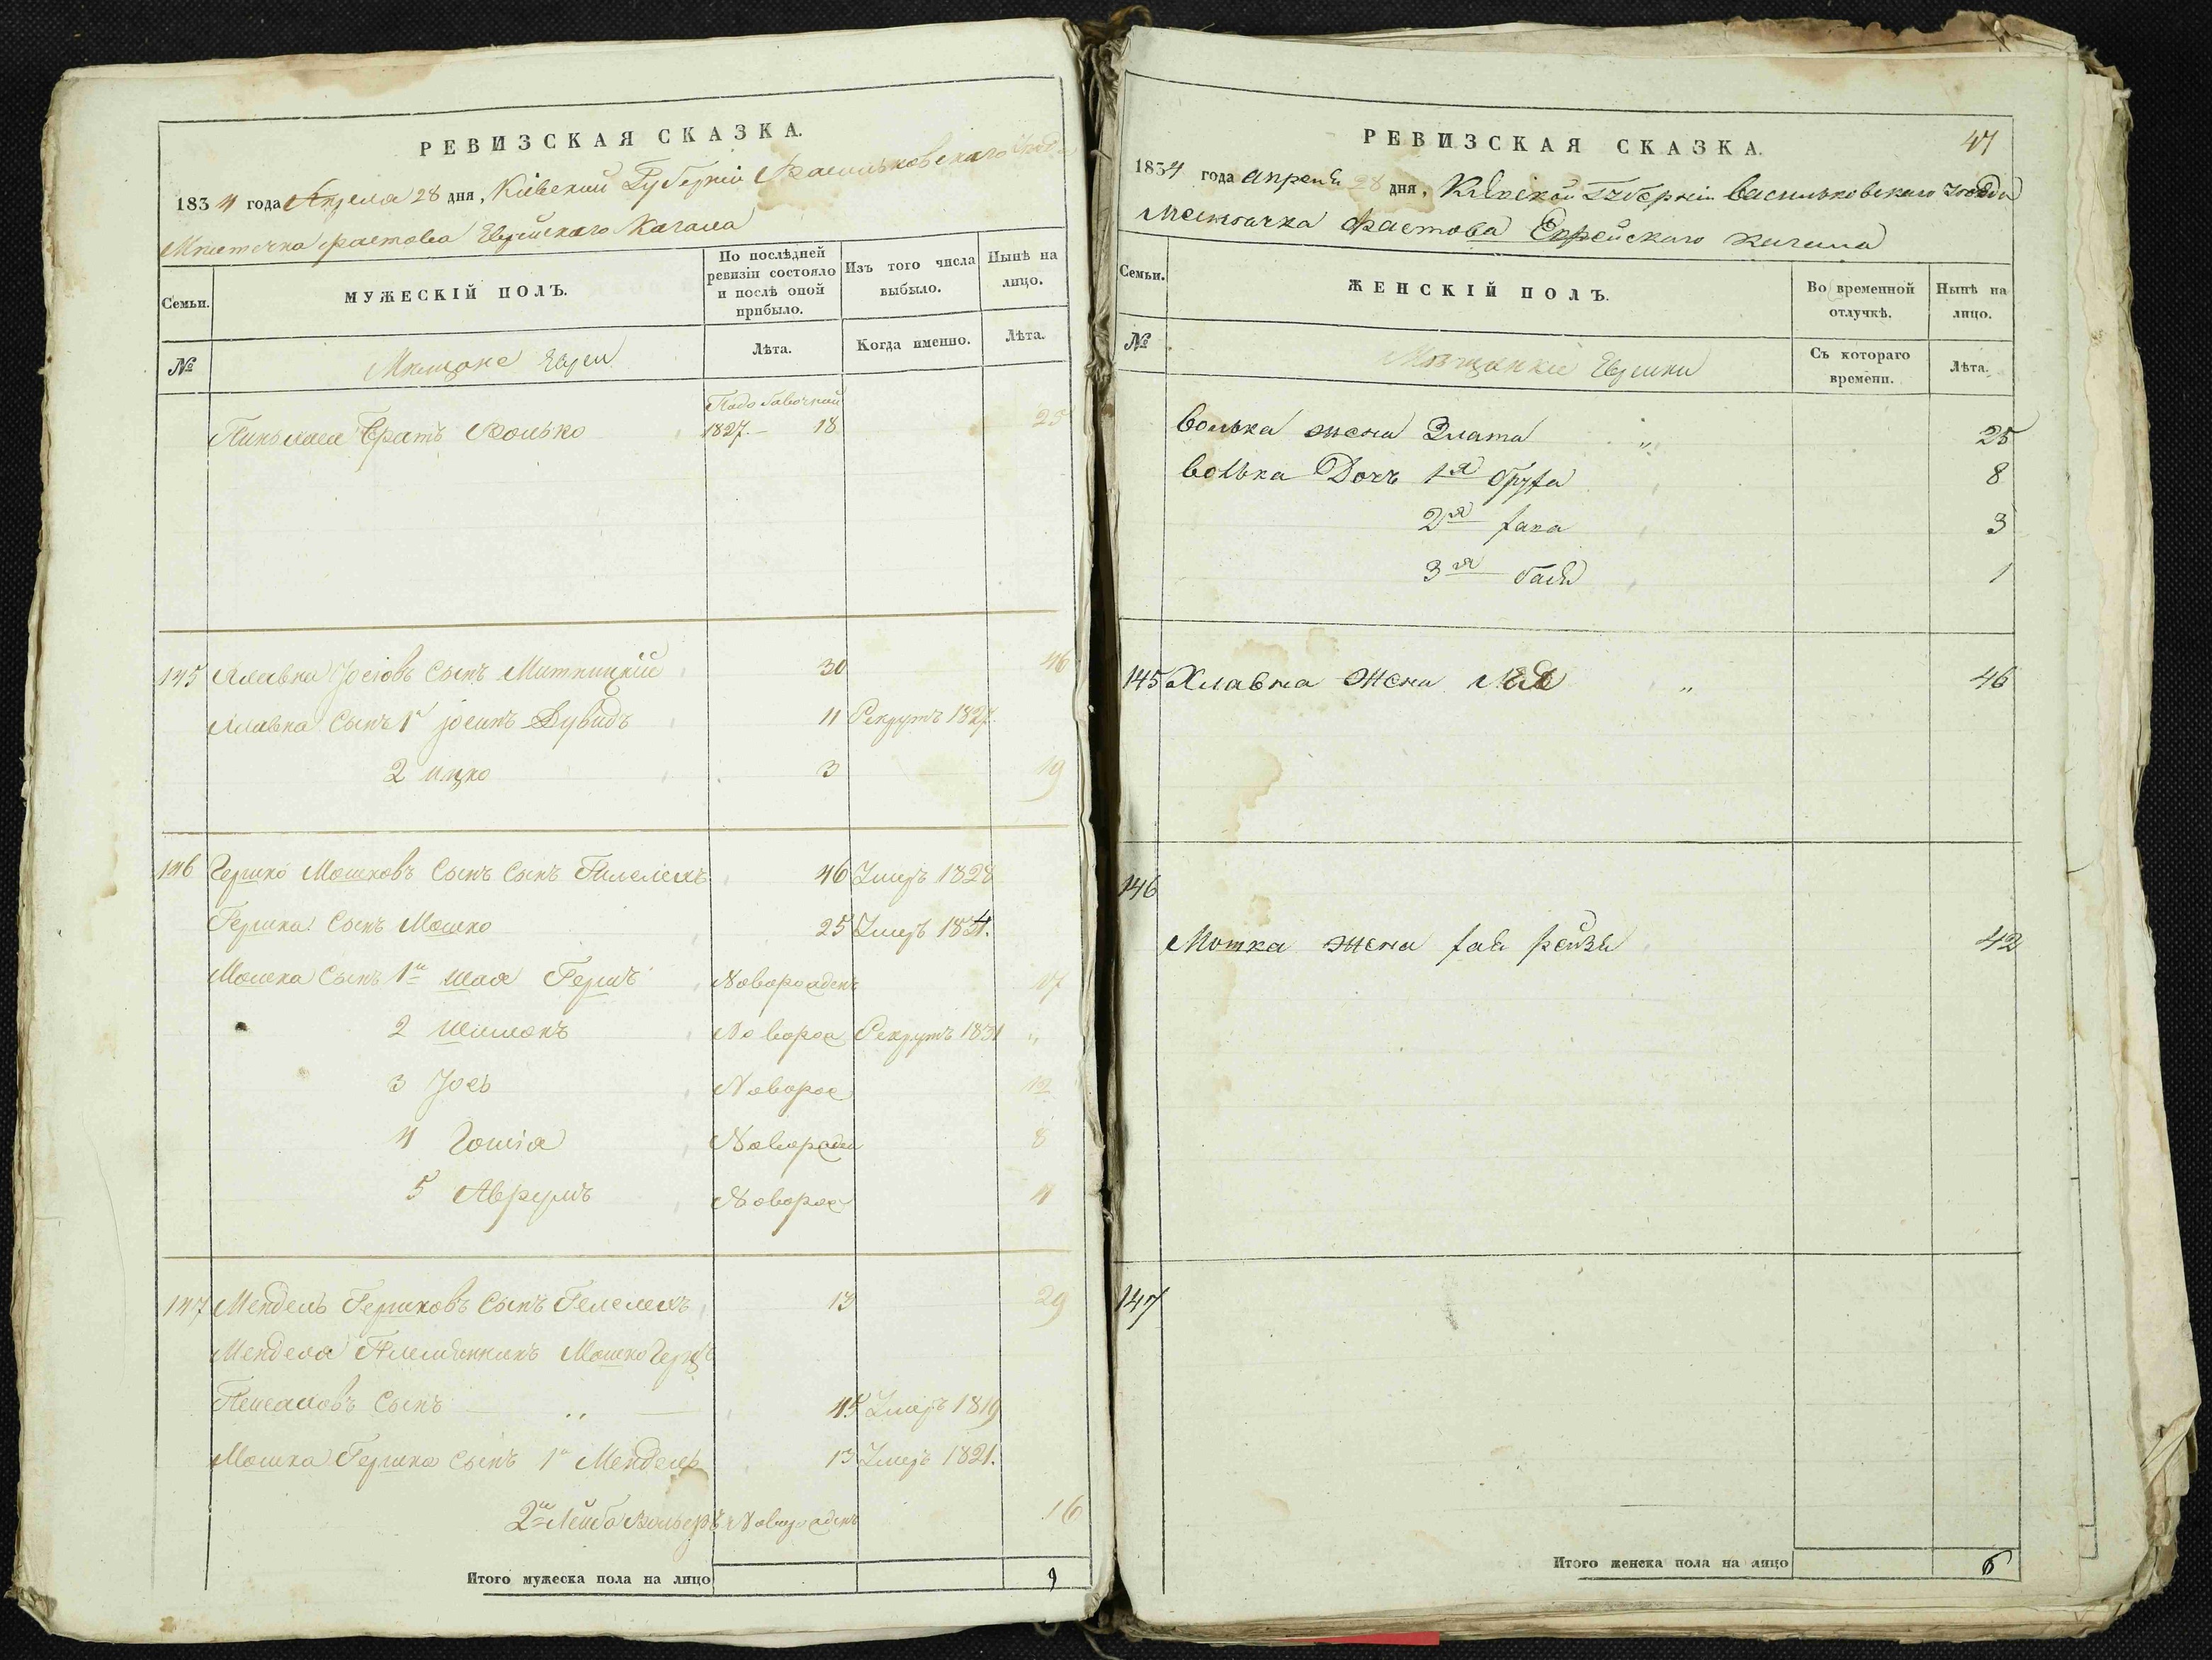 РЕВИЗСКАЯ СКАЗКА.
1834 года Апреля 28 дня, Кіевской Губерніи Васильковского Уезда
Местечка Фастова Еврейского Кагала
Семьи.
МУЖЕСКІЙ ПОЛЪ.
По послѣдней ревизіи состояло и послѣ оной прибыло.
Изъ того числа выбыло.
Нынѣ на лицо.
№
Мещане Евреи
Лѣта.
Когда именно.
Лѣта.
По добавочной
братъ Волько 1827.— 18 25
145 Хлавна Іосіовъ Сынъ Митницкій 30 46
Хлавна Сынъ 1й Іосипъ Дувидъ 11 Рекрутъ 1827.
2 Ицко 3 19
146 Гершко Мошковъ Сынъ Сынъ 46 Умеръ 1828
Гершка Сынъ Мошко 25 Умеръ 1831.
Мошка Сынъ 1й Шая Гершъ Новорожденъ 17
2 Шимонъ Новорож Рекрутъ 1831 „
3 Іось Новорож 12
4 Новорожден 8
5 Аврумъ Новорож 4
147 Мендель Гершковъ Сынъ 13 29
Менделя Племянникъ Мошко Герш
Сынъ — „ — 45 Умеръ 1819
Мошка Гершка Сынъ 1й Мендель 13 Умеръ 1821.
2й Лейба Новорожденъ 16
Итого мужеска пола на лицо 9
47
РЕВИЗСКАЯ СКАЗКА.
1834 года апреля 28 дня, Кіевской Губерніи Васильковского Уезда
Местечка Фастова Еврейского Кагала
Семьи.
ЖЕНСКІЙ ПОЛЪ.
Во временной отлучкѣ.
Нынѣ на лицо.
№
Мещанкіе Еврейки
Съ котораго времени.
Лѣта.
Волька жена Злата „ 25
Волька Дочь 1я 8
2я 3
3я 1
145 Хлавна жена Лея „ 46
146
Мошка жена Рейзя 42
147
Итого женска пола на лицо 6